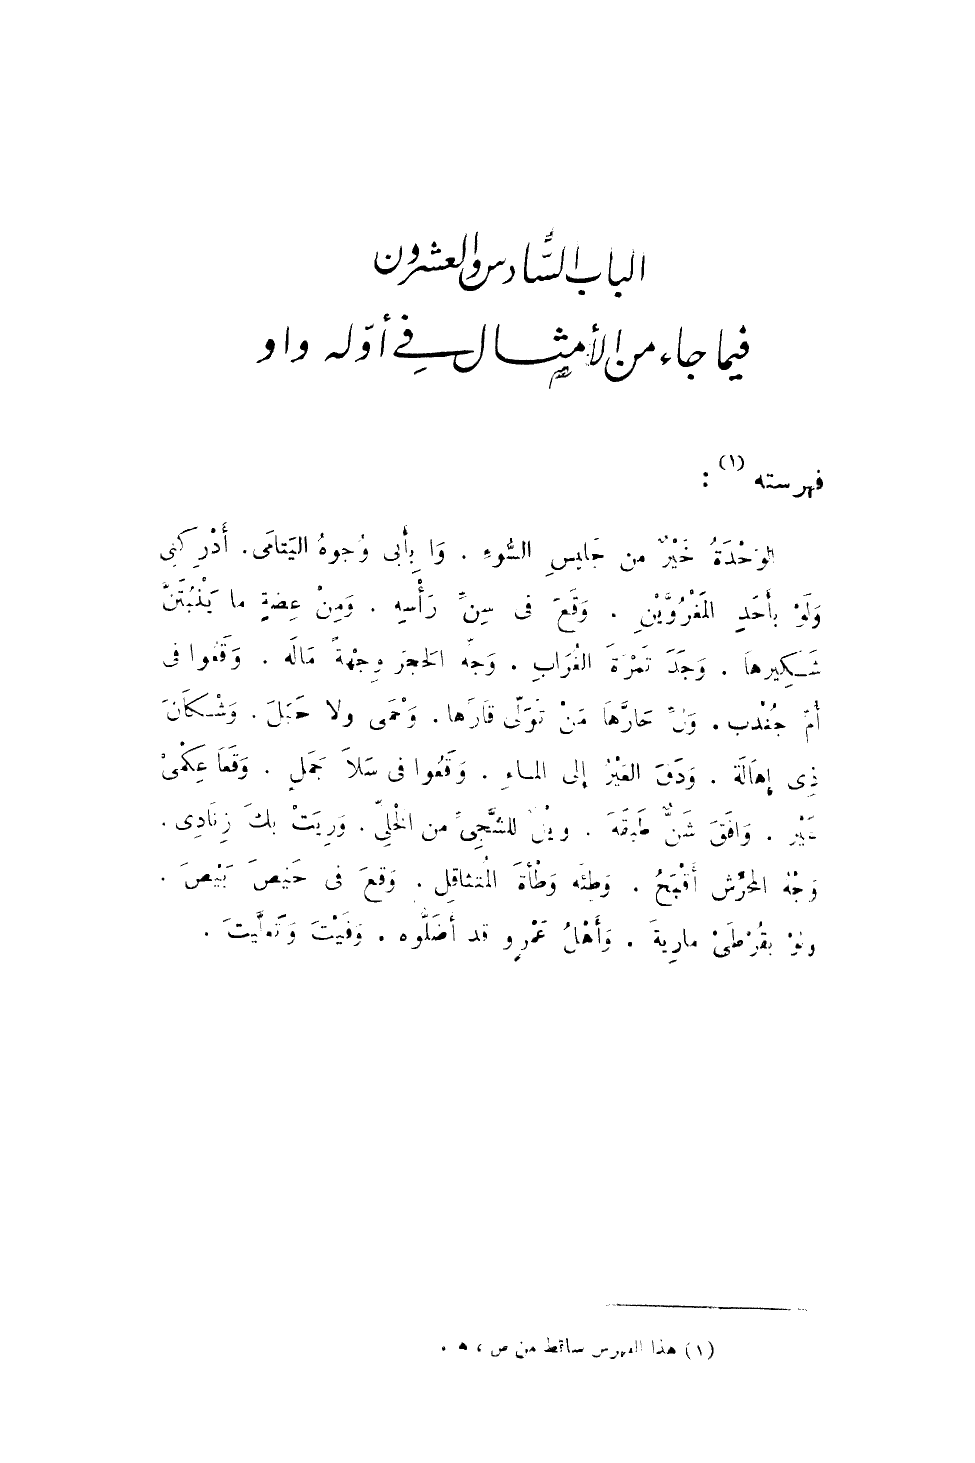 الباب السَّادس والعشرون
فيما جاء من الأمثال في أوّله واو
فهرسته (١) :
الوَحْدَةُ خَيْرٌ من جَليسِ السُّوءِ . وَا بِأَبى وُجوهُ اليَتامَى. أَدْرِكْنِى
وَلَوْ بأَحَدِ المَغْرُوَّيْنِ . وَقَعَ فى سِنِّ رَأْسِهِ . وَمِنْ عِضَةٍ ما يَنْبُتَنَّ
شَكِيرهَا . وَجَدَ تَمْرَةَ الغُرَابِ . وَجِّه الحَجَرَ وِجْهَةً مَالَه . وَقَعُوا فى
أُمِّ جُنْدب. وَلِّ حَارَّهَا مَنْ تَوَلَّى قَارَها. وَحْمَى ولا حَبَلَ. وَشْكَانَ
ذِى إِهَالَة . وَدَقَ العَيْرُ إلى الماءِ . وَقَعُوا فى سَلاَ جَمَلٍ . وَقَعَا عِكْمَىْ
عَيْر . وَافَقَ شَنٌّ طَبَقَهَ . ويْلٌ للشَّجِىِّ من الخَلِىِّ. وَرِيَتْ بكَ زِنَادِى.
وَجْهُ المحَرِّش أَقْبَحُ . وَطِئَه وَطْأةَ المُتثاقِلِ. وَقَعَ فى حَيْصَ بَيْصَ .
ولَوْ بقُرْطَىْ مارِيةَ . وَأَهْلُ عَمْرٍو قد أضَلُّوه . وَفَيْتَ وَتَعلَّيتَ .
(١) هذا الفهرس ساقط من ص ، ه .